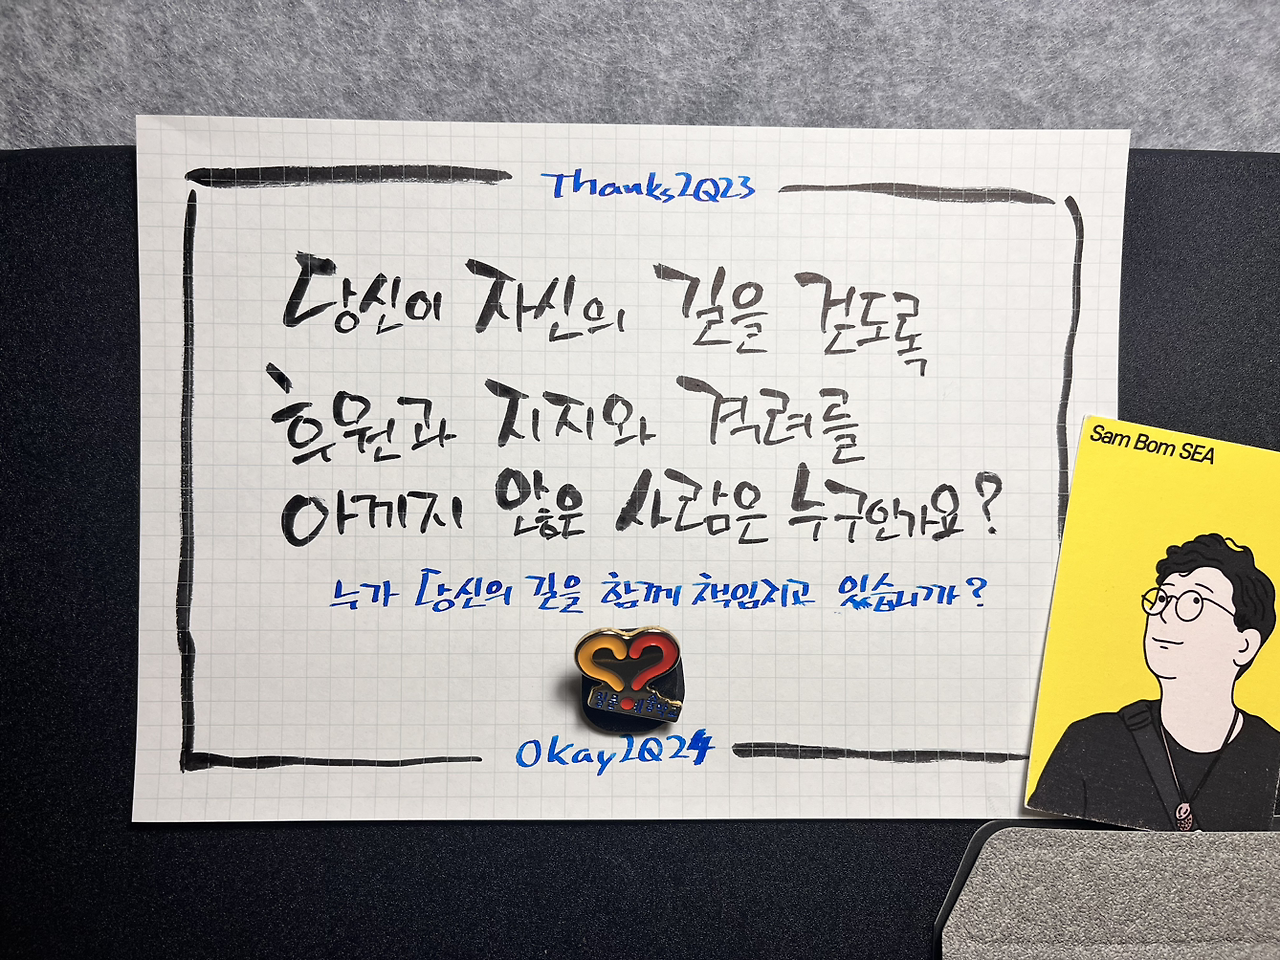 Thanks2Q23
당신이 자신의 길을 걷도록
후원과 지지와 격려를
아끼지 않은 사람은 누구인가요?
누가 당신의 길을 함께 책임지고 있습니까?
Okay2Q24
Sam Bom SEA